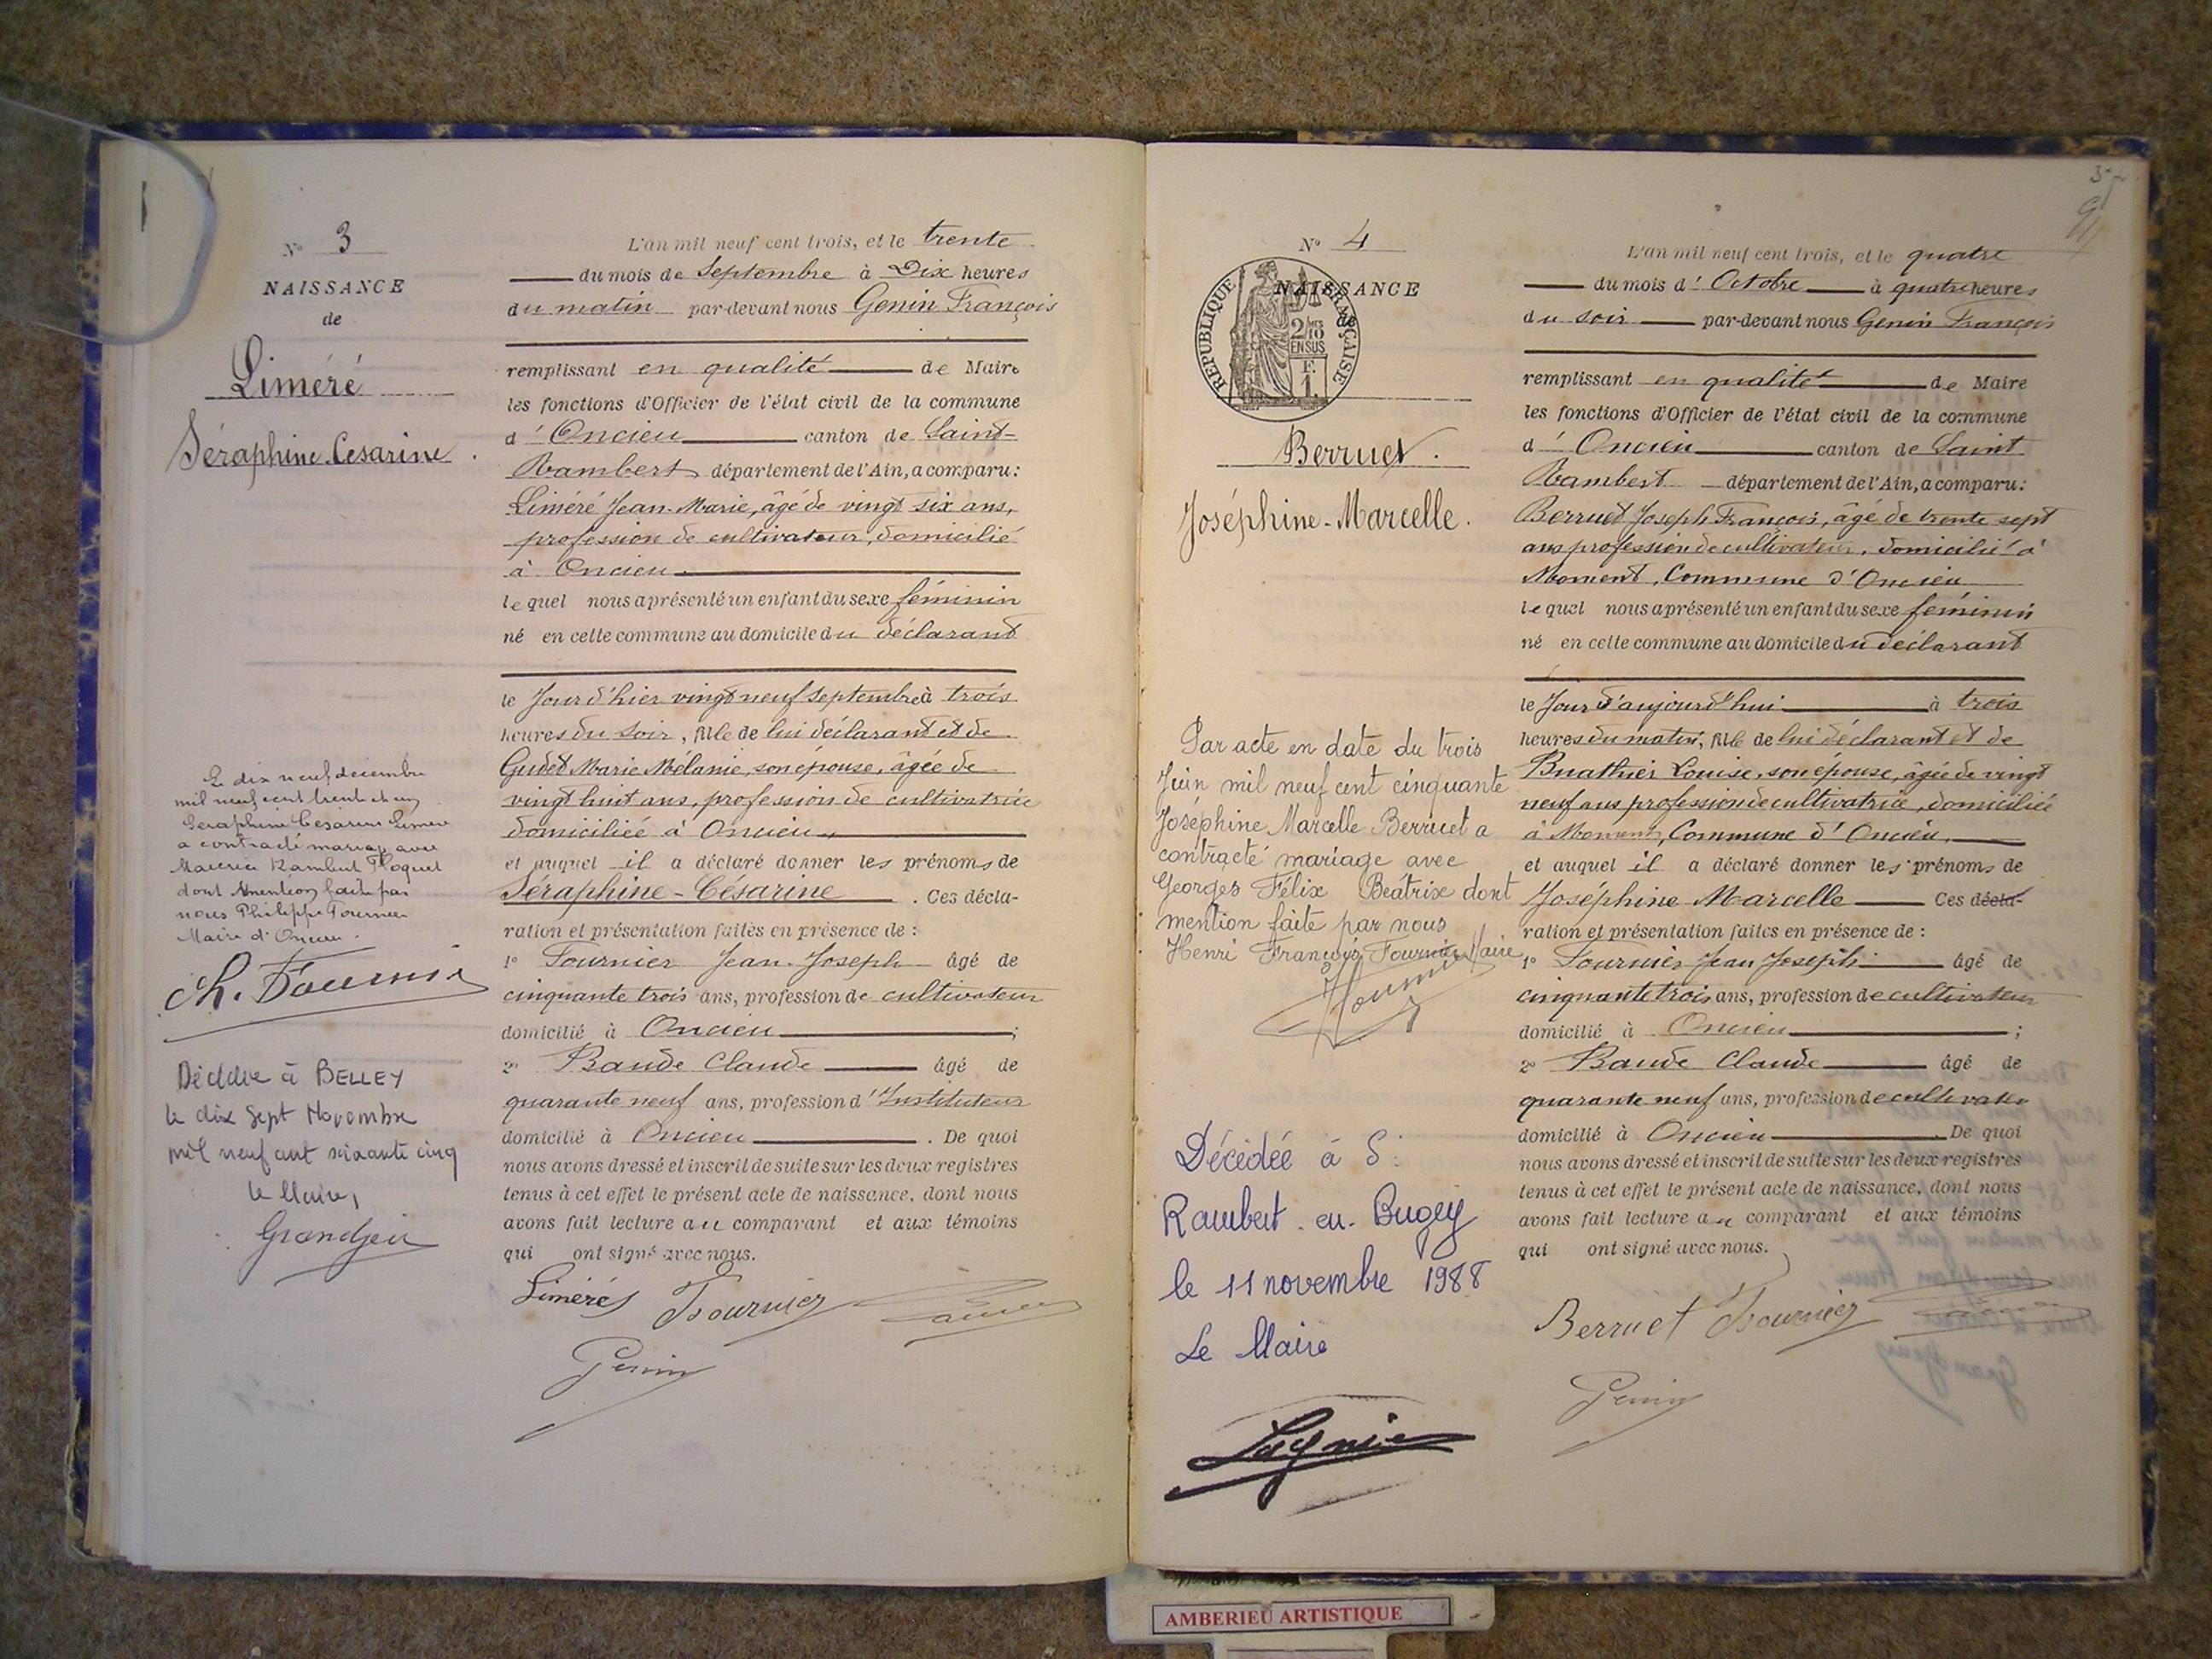 N° 3
NAISSANCE
de
Liméré
Séraphine Cesarine.
Le dix neuf decembre
mil neuf cent trente et un
Seraphine Cesarine Limere
a contracté mariage avec
Maurice Rambert Floquet
dont mention faite par
nous Philippe Fournier
Maire d'Oncieu.
Ph. Fournier
Décédée à BELLEY
le dix sept Novembre
mil neuf cent soixante cinq
le Maire,
Grandjean
L'an mil neuf cent trois, et le trente
du mois de Septembre à Dix heures
du matin par-devant nous Genin François
remplissant en qualité de Maire
les fonctions d'Officier de l'état civil de la commune
d'Oncieu canton de Saint-
Rambert département de l'Ain, a comparu:
Liméré Jean-Marie, âgé de vingt six ans,
profession de cultivateur, domicilié
à Oncieu.
lequel nous a présenté un enfant du sexe féminin
né en cette commune au domicile du déclarant
le Jour d'hier vingt neuf septembre à trois
heures du soir, fille de lui déclarant et de
Gudet Marie Mélanie, son épouse, âgée de
vingt huit ans, profession de cultivatrice
domiciliée à Oncieu,
et auquel il a déclaré donner les prénoms de
Séraphine-Césarine. Ces décla-
ration et présentation faites en présence de :
1° Fournier Jean-Joseph âgé de
cinquante trois ans, profession de cultivateur
domicilié à Oncieu ;
2° Baude Claude âgé de
quarante neuf ans, profession d'Instituteur
domicilié à Oncieu. De quoi
nous avons dressé et inscrit de suite sur les deux registres
tenus à cet effet le présent acte de naissance, dont nous
avons fait lecture au comparant et aux témoins
qui ont signé avec nous.
Liméré Fournier
Genin
3
N° 4
NAISSANCE
de
RÉPUBLIQUE FRANÇAISE
2/10 MES
EN SUS
F.
1.
Berruet.
Joséphine-Marcelle.
Par acte en date du trois
Juin mil neuf cent cinquante
Joséphine Marcelle Berruet a
contracté mariage avec
Georges Félix Béatrix dont
mention faite par nous
Henri François Fournier Maire
Fournier
Décédée à S:
Rambert-en-Bugey
le 11 novembre 1988
Le Maire
L'an mil neuf cent trois, et le quatre
du mois d'Octobre à quatre heures
du soir par-devant nous Genin François
remplissant en qualité de Maire
les fonctions d'Officier de l'état civil de la commune
d'Oncieu canton de Saint
Rambert département de l'Ain, a comparu:
Berruet Joseph François, âgé de trente sept
ans profession de cultivateur, domicilié à
Moment, Commune d'Oncieu
lequel nous a présenté un enfant du sexe féminin
né en cette commune au domicile du déclarant
le Jour d'aujourd'hui à trois
heures du matin, fille de lui déclarant et de
Buathier Louise, son épouse, âgée de vingt
neuf ans profession de cultivatrice, domiciliée
à Moment, Commune d'Oncieu,
et auquel il a déclaré donner les prénoms de
Joséphine Marcelle Ces décla-
ration et présentation faites en présence de :
1° Fournier Jean Joseph âgé de
cinquante trois ans, profession de cultivateur
domicilié à Oncieu ;
2° Baude Claude âgé de
quarante neuf ans, profession de cultivateur
domicilié à Oncieu. De quoi
nous avons dressé et inscrit de suite sur les deux registres
tenus à cet effet le présent acte de naissance, dont nous
avons fait lecture au comparant et aux témoins
qui ont signé avec nous.
Berruet Fournier
Genin
AMBERIEU ARTISTIQUE